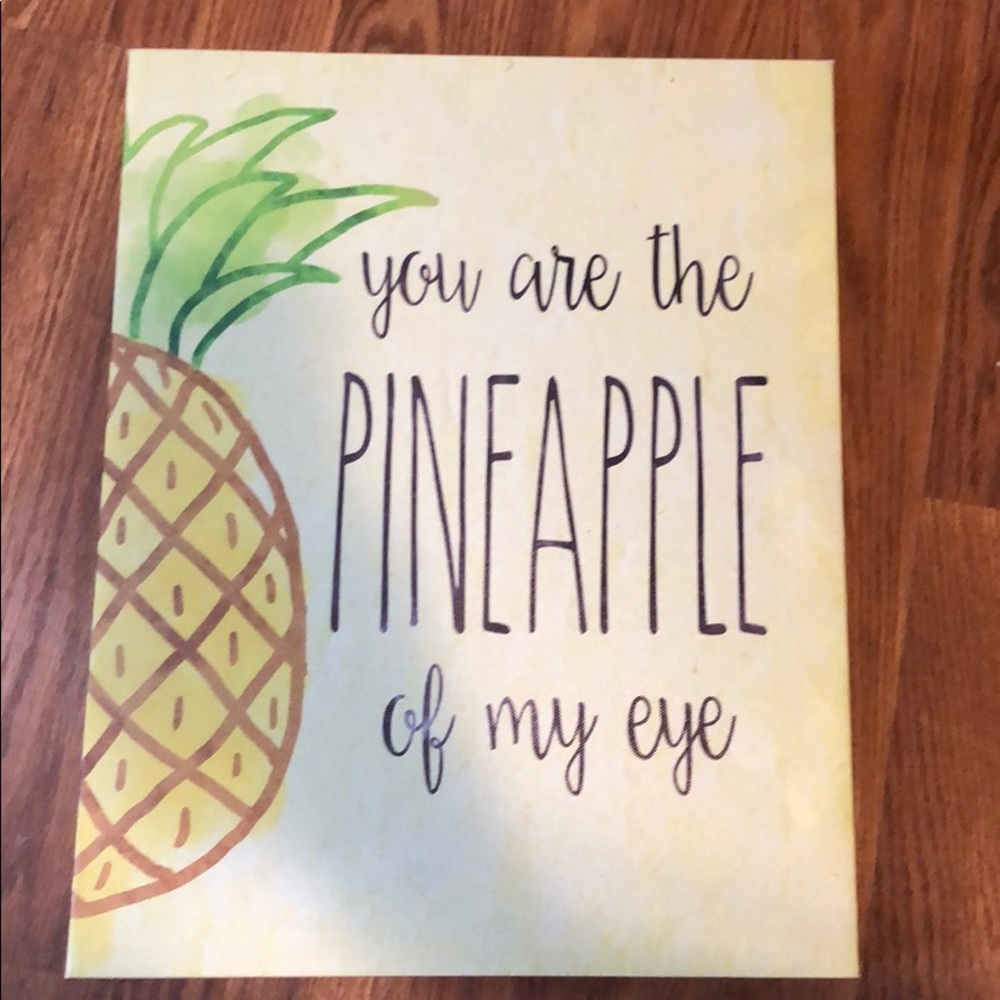 you are the
PINEAPPLE
of my eye